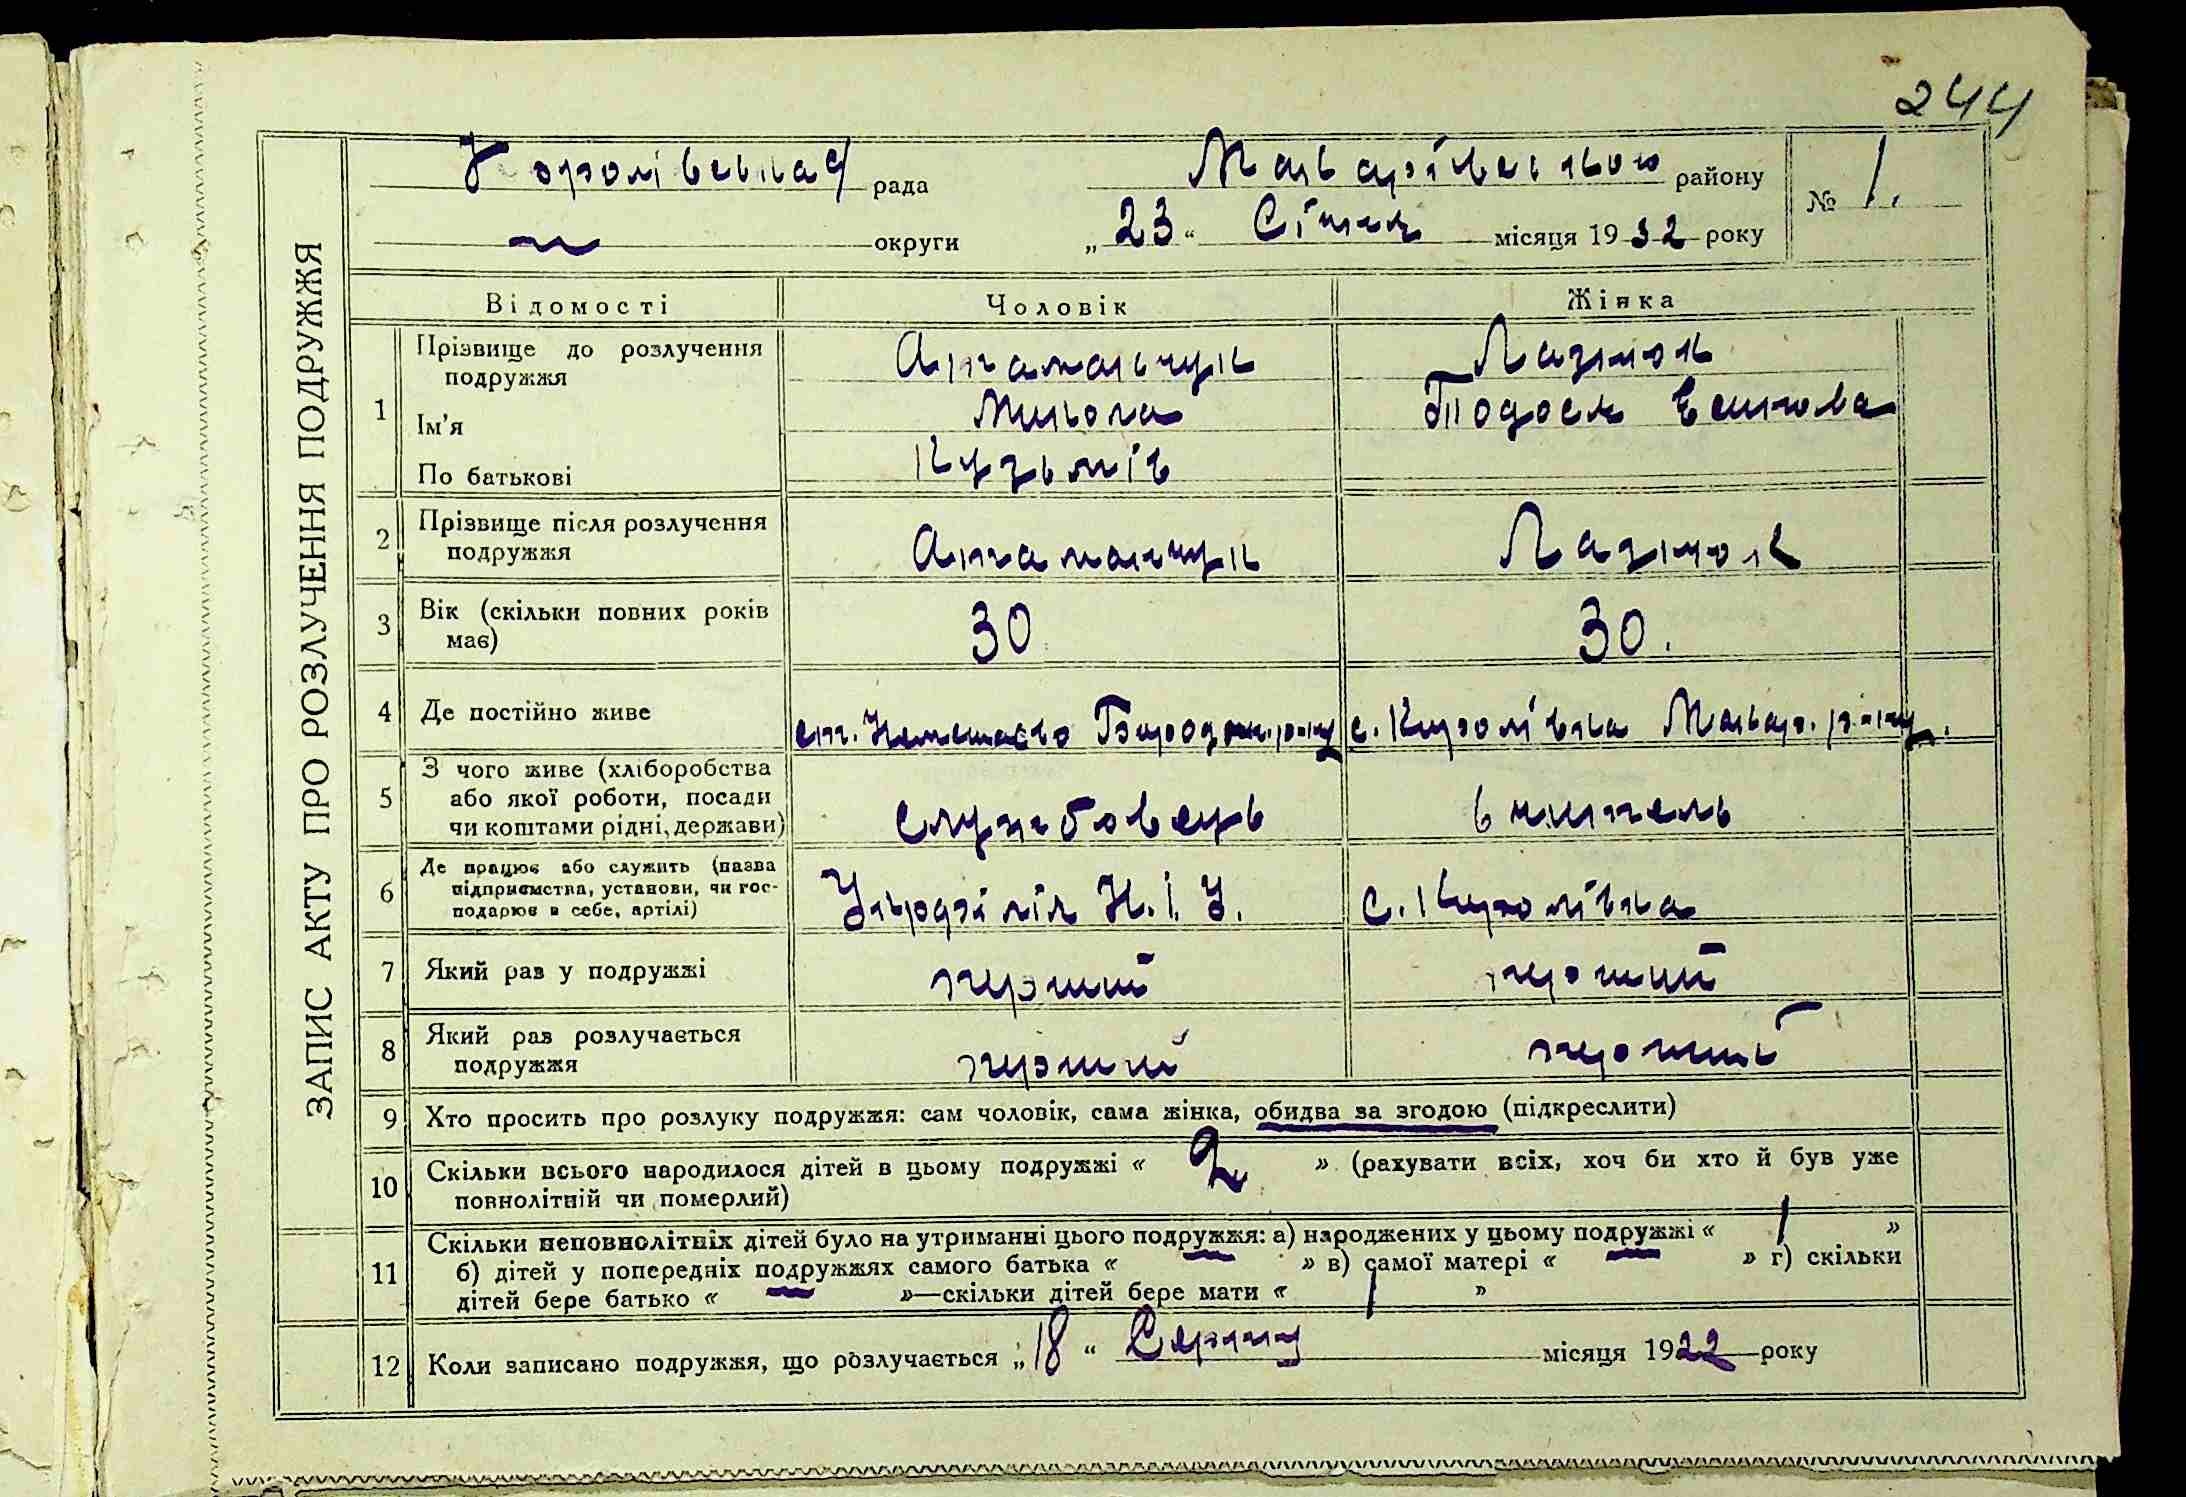 244
Королівська рада Макарівського району № 1.
округи „23“ Січня місяця 1932 року
ЗАПИС АКТУ ПРО РОЗЛУЧЕННЯ ПОДРУЖЖЯ
Відомості Чоловік Жінка
1 Прізвище до розлучення подружжя Атаманчук Лазнюк
Ім'я Микола Тодося
По батькові Кузьмів
2 Прізвище після розлучення подружжя Атаманчук Лазнюк
3 Вік (скільки повних років має) 30 30.
4 Де постійно живе ст. Немешаєво Бородян. р-ну с. Королівка Макар. р-ну.
5 З чого живе (хліборобства або якої роботи, посади чи коштами рідні, держави) службовець вчитель
6 Де працює або служить (назва підприємства, установи, чи господарює в себе, артілі) Н.І.У. с. Королівка
7 Який раз у подружжі перший перший
8 Який раз розлучається подружжя перший перший
9 Хто просить про розлуку подружжя: сам чоловік, сама жінка, обидва за згодою (підкреслити)
10 Скільки всього народилося дітей в цьому подружжі « 2 » (рахувати всіх, хоч би хто й був уже
повнолітній чи померлий)
11 Скільки неповнолітніх дітей було на утриманні цього подружжя: а) народжених у цьому подружжі « 1 »
б) дітей у попередніх подружжях самого батька « — » в) самої матері « — » г) скільки
дітей бере батько « — »—скільки дітей бере мати « 1 »
12 Коли записано подружжя, що розлучається „18“ Серпня місяця 1922 року